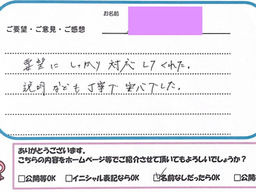 お名前
ご要望・ご意見・ご感想
要望にしっかり対応してくれた。
説明なども丁寧で安心でした。
ありがとうございます。
こちらの内容をホームページ等でご紹介させて頂いてもよろしいでしょうか?
□公開等OK □イニシャル表記ならOK ☑名前なしだったらOK □公開